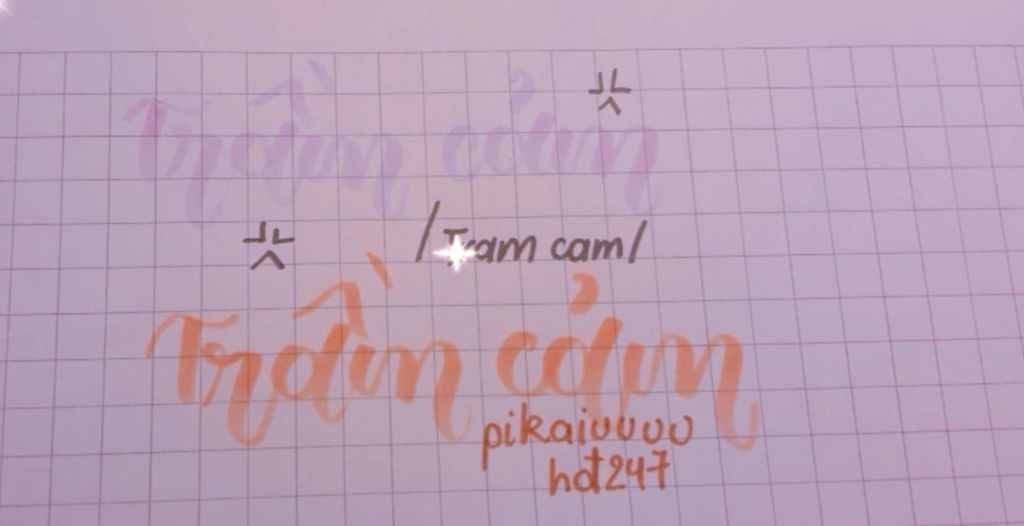 Trầm cảm
/Tram cam/
Trầm cảm
pikaiuuuu
hđ247